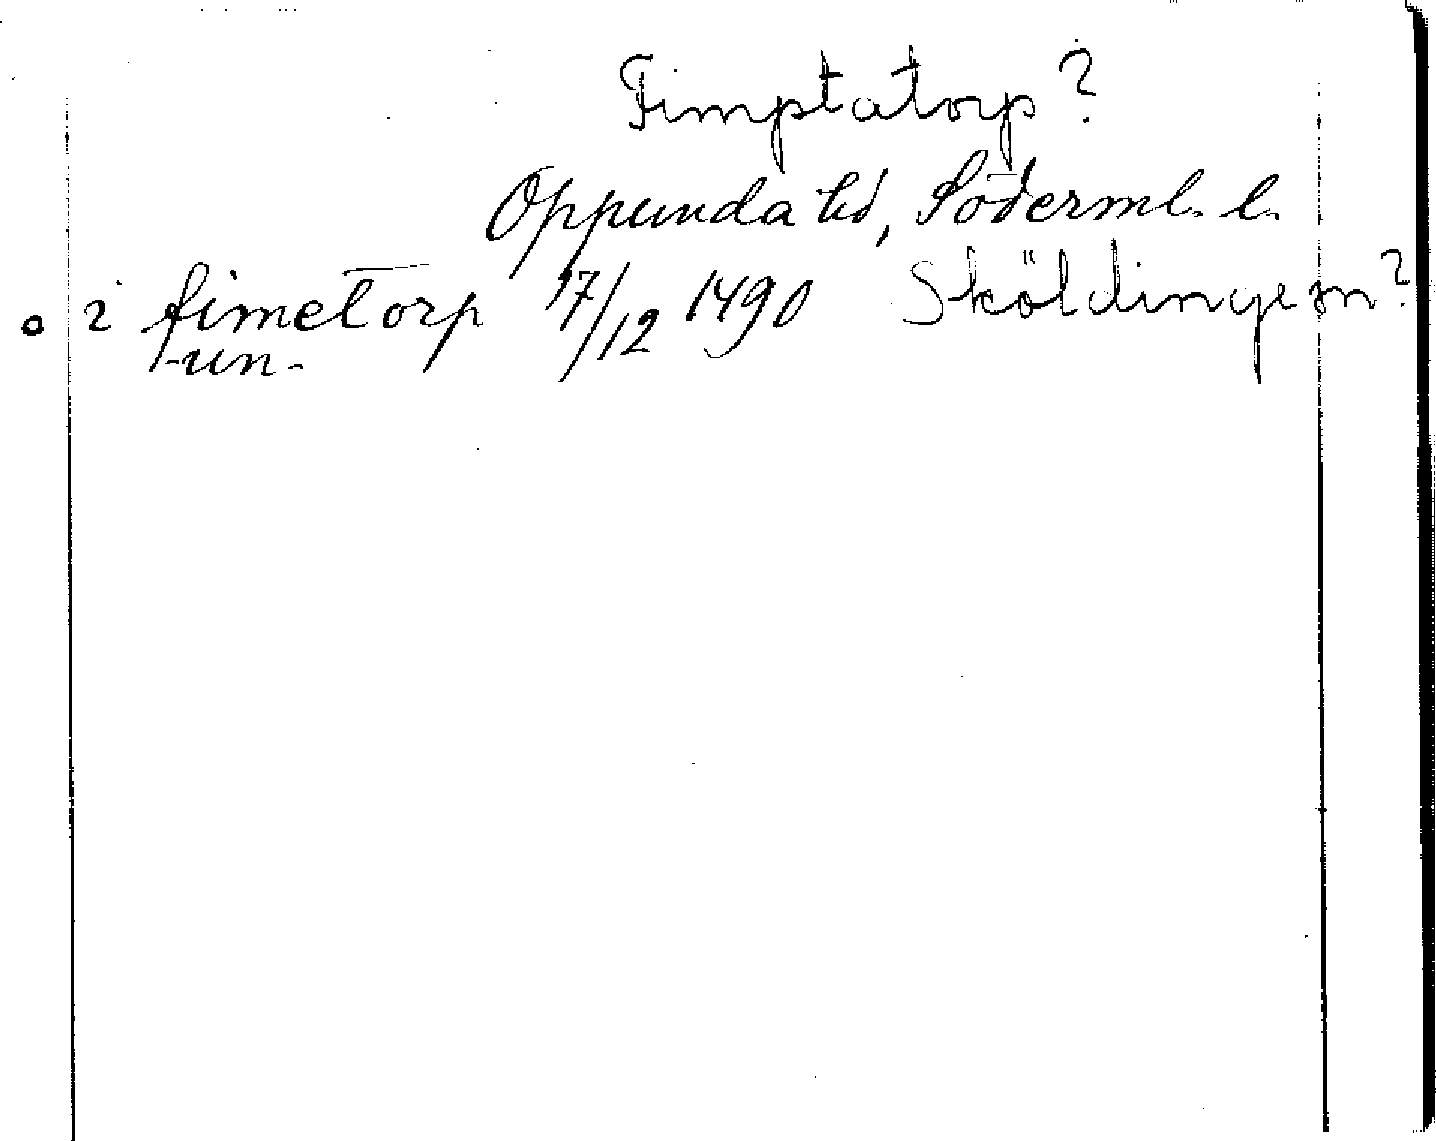 Fimptatorp?
Oppunda hd, Söderml. l.
i fimetorp 17/12 1490 Sköldinge sn?
-un-